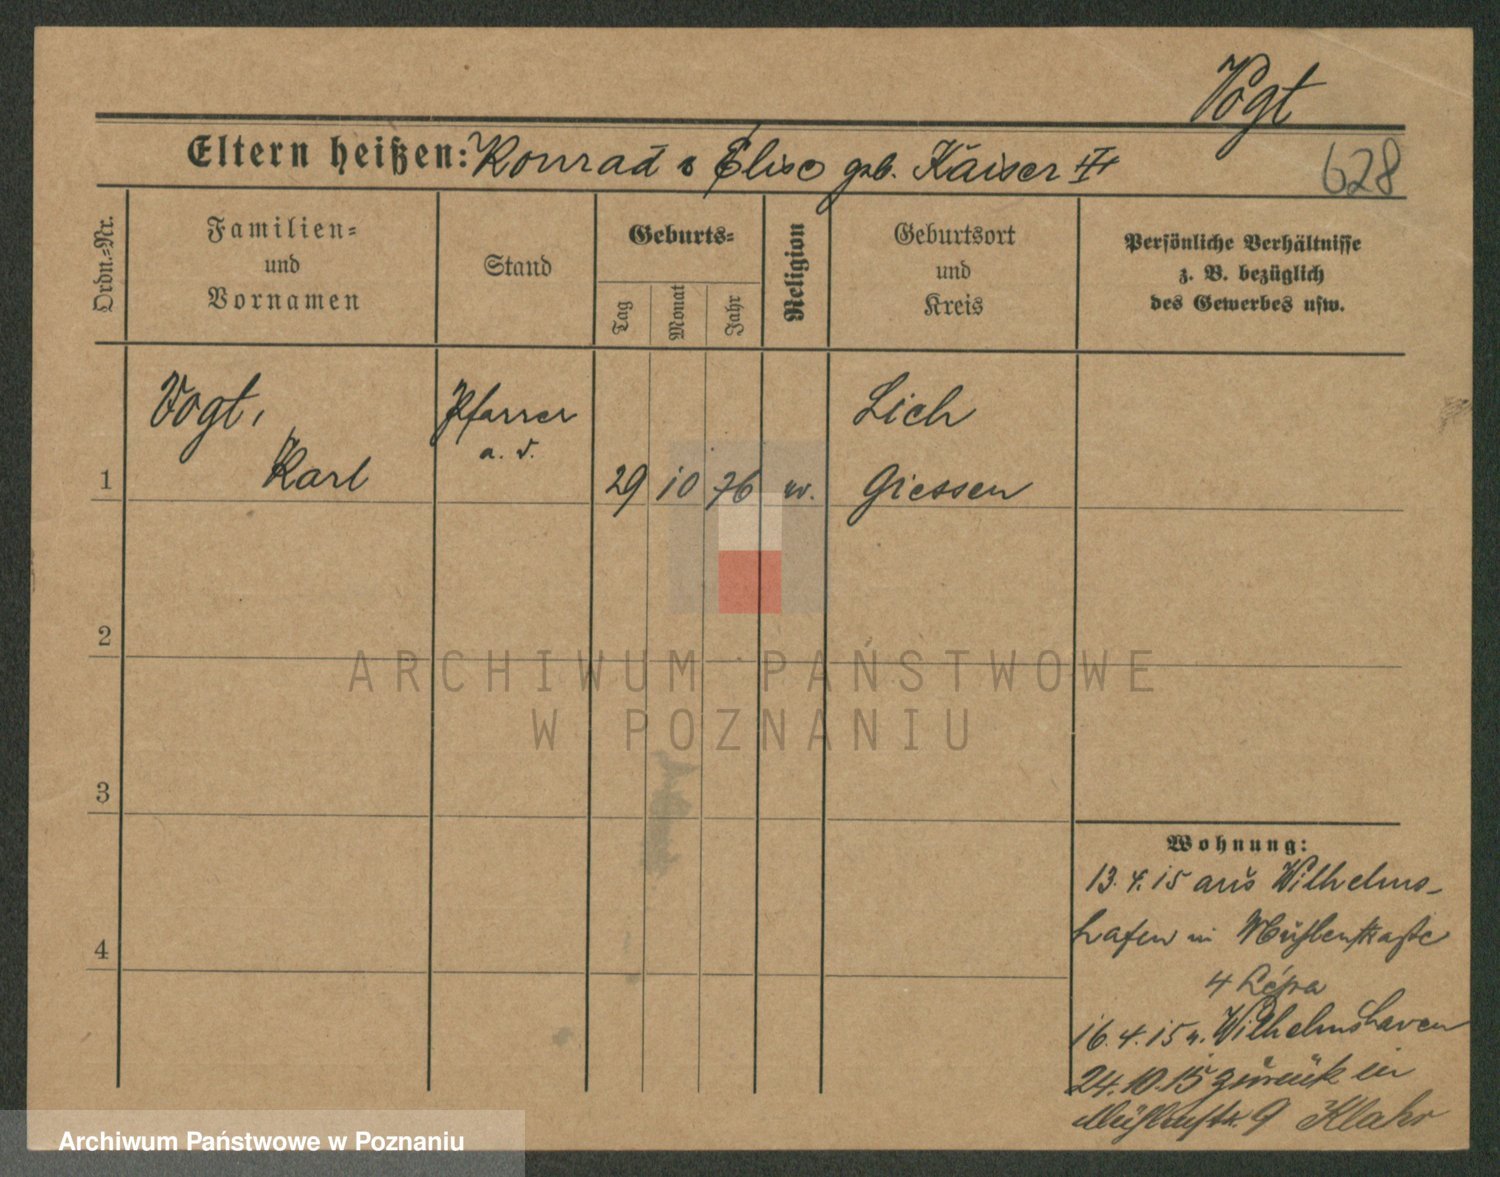 Vogt
Eltern heißen: Konrad u Elise geb. Kaiser
628
Ordn.-Nr.
Familien-
und
Vornamen
Stand
Geburts-
Tag
Monat
Jahr
Religion
Geburtsort
und
Kreis
Persönliche Verhältnisse
z. B. bezüglich
des Gewerbes usw.
1
Vogt,
Karl
Pfarrer
a. D.
29
10
76
ev.
Lich
Giessen
2
3
4
ARCHIWUM PAŃSTWOWE
W POZNANIU
Wohnung:
13. 4. 15 aus Wilhelms-
hafen in Mühlenstraße
4
16. 4. 15 n. Wilhelmshaven
24. 10. 15 zurück in
Mühlenstr. 9
Archiwum Państwowe w Poznaniu